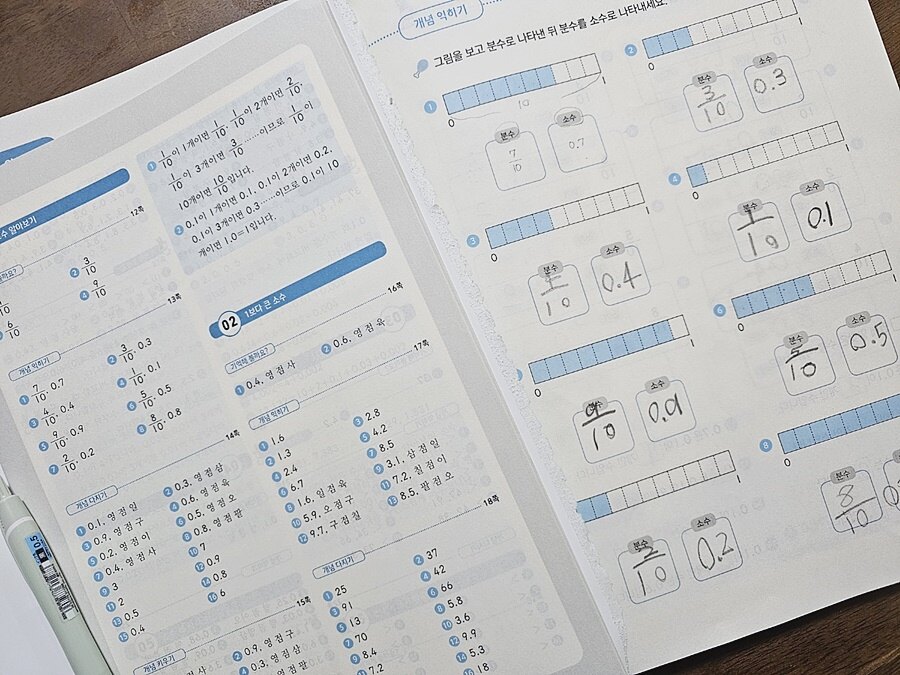 수 알아보기
12쪽
② 3/10
④ 9/10
6/10
13쪽
개념 익히기
① 7/10, 0.7
② 3/10, 0.3
③ 4/10, 0.4
④ 1/10, 0.1
⑤ 9/10, 0.9
⑥ 5/10, 0.5
⑦ 2/10, 0.2
⑧ 8/10, 0.8
14쪽
개념 다지기
① 0.1, 영 점 일
② 0.3, 영 점 삼
③ 0.9, 영 점 구
④ 0.6, 영 점 육
⑤ 0.2, 영 점 이
⑥ 0.5, 영 점 오
⑦ 0.4, 영 점 사
⑧ 0.8, 영 점 팔
⑨ 3
⑩ 7
⑪ 2
⑫ 0.9
⑬ 0.5
⑭ 0.8
⑮ 0.4
⑯ 6
15쪽
개념 키우기
② 0.9, 영 점 구
④ 0.3, 영 점 삼
① 1/10이 1개이면 1/10, 1/10이 2개이면 2/10,
1/10이 3개이면 3/10……이므로 1/10이
10개이면 10/10입니다.
② 0.1이 1개이면 0.1, 0.1이 2개이면 0.2,
0.1이 3개이면 0.3……이므로 0.1이 10
개이면 1.0=1입니다.
02 1보다 큰 소수
16쪽
기억해 볼까요?
① 0.4, 영 점 사
② 0.6, 영 점 육
17쪽
개념 익히기
① 1.6
② 1.3
③ 2.8
④ 2.4
⑤ 4.2
⑥ 6.7
⑦ 8.5
⑧ 1.6, 일 점 육
⑨ 3.1, 삼 점 일
⑩ 5.9, 오 점 구
⑪ 7.2, 칠 점 이
⑫ 9.7, 구 점 칠
⑬ 8.5, 팔 점 오
18쪽
개념 다지기
① 25
② 37
③ 91
④ 42
⑤ 13
⑥ 66
⑦ 70
⑧ 5.8
⑨ 8.4
⑩ 3.6
⑪ 7.2
⑫ 9.9
⑭ 5.3
⑯ 18
개념 익히기
그림을 보고 분수로 나타낸 뒤 분수를 소수로 나타내세요.
① 0 1
10
분수 7/10 소수 0.7
② 0 1
분수 3/10 소수 0.3
③ 0 1
분수 소수 0.4
④ 0 1
분수 1/10 소수 0.1
0 1
분수 9/10 소수 0.9
⑥ 0 1
분수 5/10 소수 0.5
1
분수 2/10 소수 0.2
⑧ 0
분수 8/10
0.5